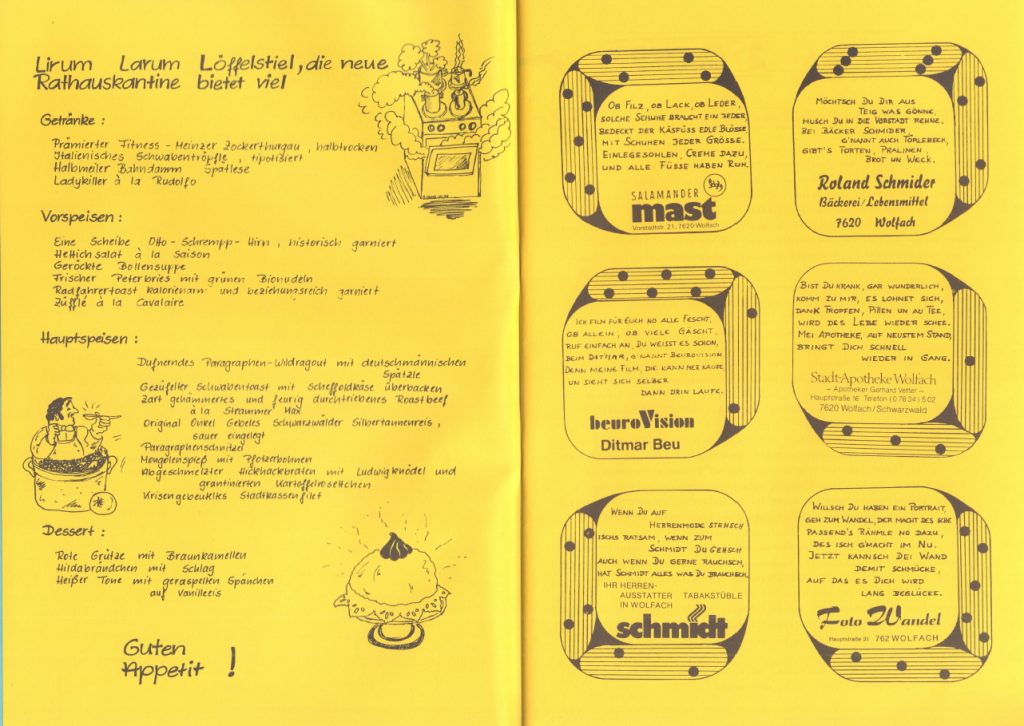 Lirum Larum Löffelstiel, die neue
Rathauskantine bietet viel
Getränke :
Prämierter Fitness - Meinzer Zockerthurgau, halbtrocken
Italienisches Schwabentröpfle, tipotisiert
Halbmeiler Bahndamm Spätlese
Ladykiller à la Rudolfo
Vorspeisen :
Eine Scheibe Otto - Schrempp - Hirn, historisch garniert
Hettichsalat à la Saison
Geröckte Bollensuppe
Frischer Peterbries mit grünen Bionudeln
Radfahrertoast kalorienarm und beziehungsreich garniert
Züfflé à la Cavalaire
Hauptspeisen :
Dufnerndes Paragraphen-Wildragout mit deutschmännischen
Spätzle
Gezüfelter Schwabentoast mit Scheffoldkäse überbacken
Zart gehammertes und feurig durchtriebenes Roastbeef
à la Strammer Max
Original Onkel Gebeles Schwarzwälder Silbertannenreis,
sauer eingelegt
Paragraphenschnitzel
Mengelenspieß mit Pfotzerbohnen
Abgeschmelzter Hickhackbraten mit Ludwigknödel und
grantinierten Kartoffelrosettchen
Krisengebeuteltes Stadtkassenfilet
Dessert :
Rote Grütze mit Braunkamellen
Hildabrändchen mit Schlag
Heißer Tone mit geraspelten Spänchen
auf Vanilleeis
Guten
Appetit !
OB FILZ, OB LACK, OB LEDER,
SOLCHE SCHUHE BRAUCHT EIN JEDER
BEDECKT DER KÄSFUSS EDLE BLÖSSE
MIT SCHUHEN JEDER GRÖSSE.
EINLEGESOHLEN, CREME DAZU,
UND ALLE FÜSSE HABEN RUH.
SALAMANDER
mast
Vorstadtstr. 21, 7620 Wolfach
MÖCHTSCH DU DIR AUS
TEIG WAS GÖNNE,
MUSCH DU IN DIE VORSTADT RENNE.
BEI BÄCKER SCHMIDER,
G'NANNT AUCH TÖPLEBECK,
GIBT'S TORTEN, PRALINEN,
BROT UN WECK.
Roland Schmider
Bäckerei/Lebensmittel
7620 Wolfach
ICH FILM FÜR EUCH NO ALLE FESCHT,
OB ALLEIN, OB VIELE GÄSCHT.
RUF EINFACH AN, DU WEISST ES SCHON,
BEIM DITMAR, G'NANNT BEUROVISION
DENN MEINE FILM, DIE KANN MER KAUFE
UN SIEHT SICH SELBER
DANN DRIN LAUFE.
beuroVision
Ditmar Beu
BIST DU KRANK, GAR WUNDERLICH,
KOMM ZU MIR, ES LOHNET SICH,
DANK TROPFEN, PILLEN UN AU TEE,
WIRD DES LEBE WIEDER SCHEE.
MEI APOTHEKE, AUF NEUSTEM STAND,
BRINGT DICH SCHNELL
WIEDER IN GANG.
Stadt-Apotheke Wolfach
– Apotheker Gerhard Vetter –
Hauptstraße 16 Telefon (0 78 34) 5 02
7620 Wolfach/Schwarzwald
WENN DU AUF
HERRENMODE STEHSCH
ISCHS RATSAM, WENN ZUM
SCHMIDT DU GEHSCH
AUCH WENN DU GERNE RAUCHSCH,
HAT SCHMIDT ALLES WAS DU BRAUCHSCH.
IHR HERREN-
AUSSTATTER TABAKSTÜBLE
IN WOLFACH
schmidt
WILLSCH DU HABEN EIN PORTRAIT,
GEH ZUM WANDEL, DER MACHT DES SCHE
PASSEND'S RÄHMLE NO DAZU,
DES ISCH G'MACHT IM NU.
JETZT KANNSCH DEI WAND
DEMIT SCHMÜCKE,
AUF DAS ES DICH WIRD
LANG BEGLÜCKE.
Foto Wandel
Hauptstraße 31 762 WOLFACH